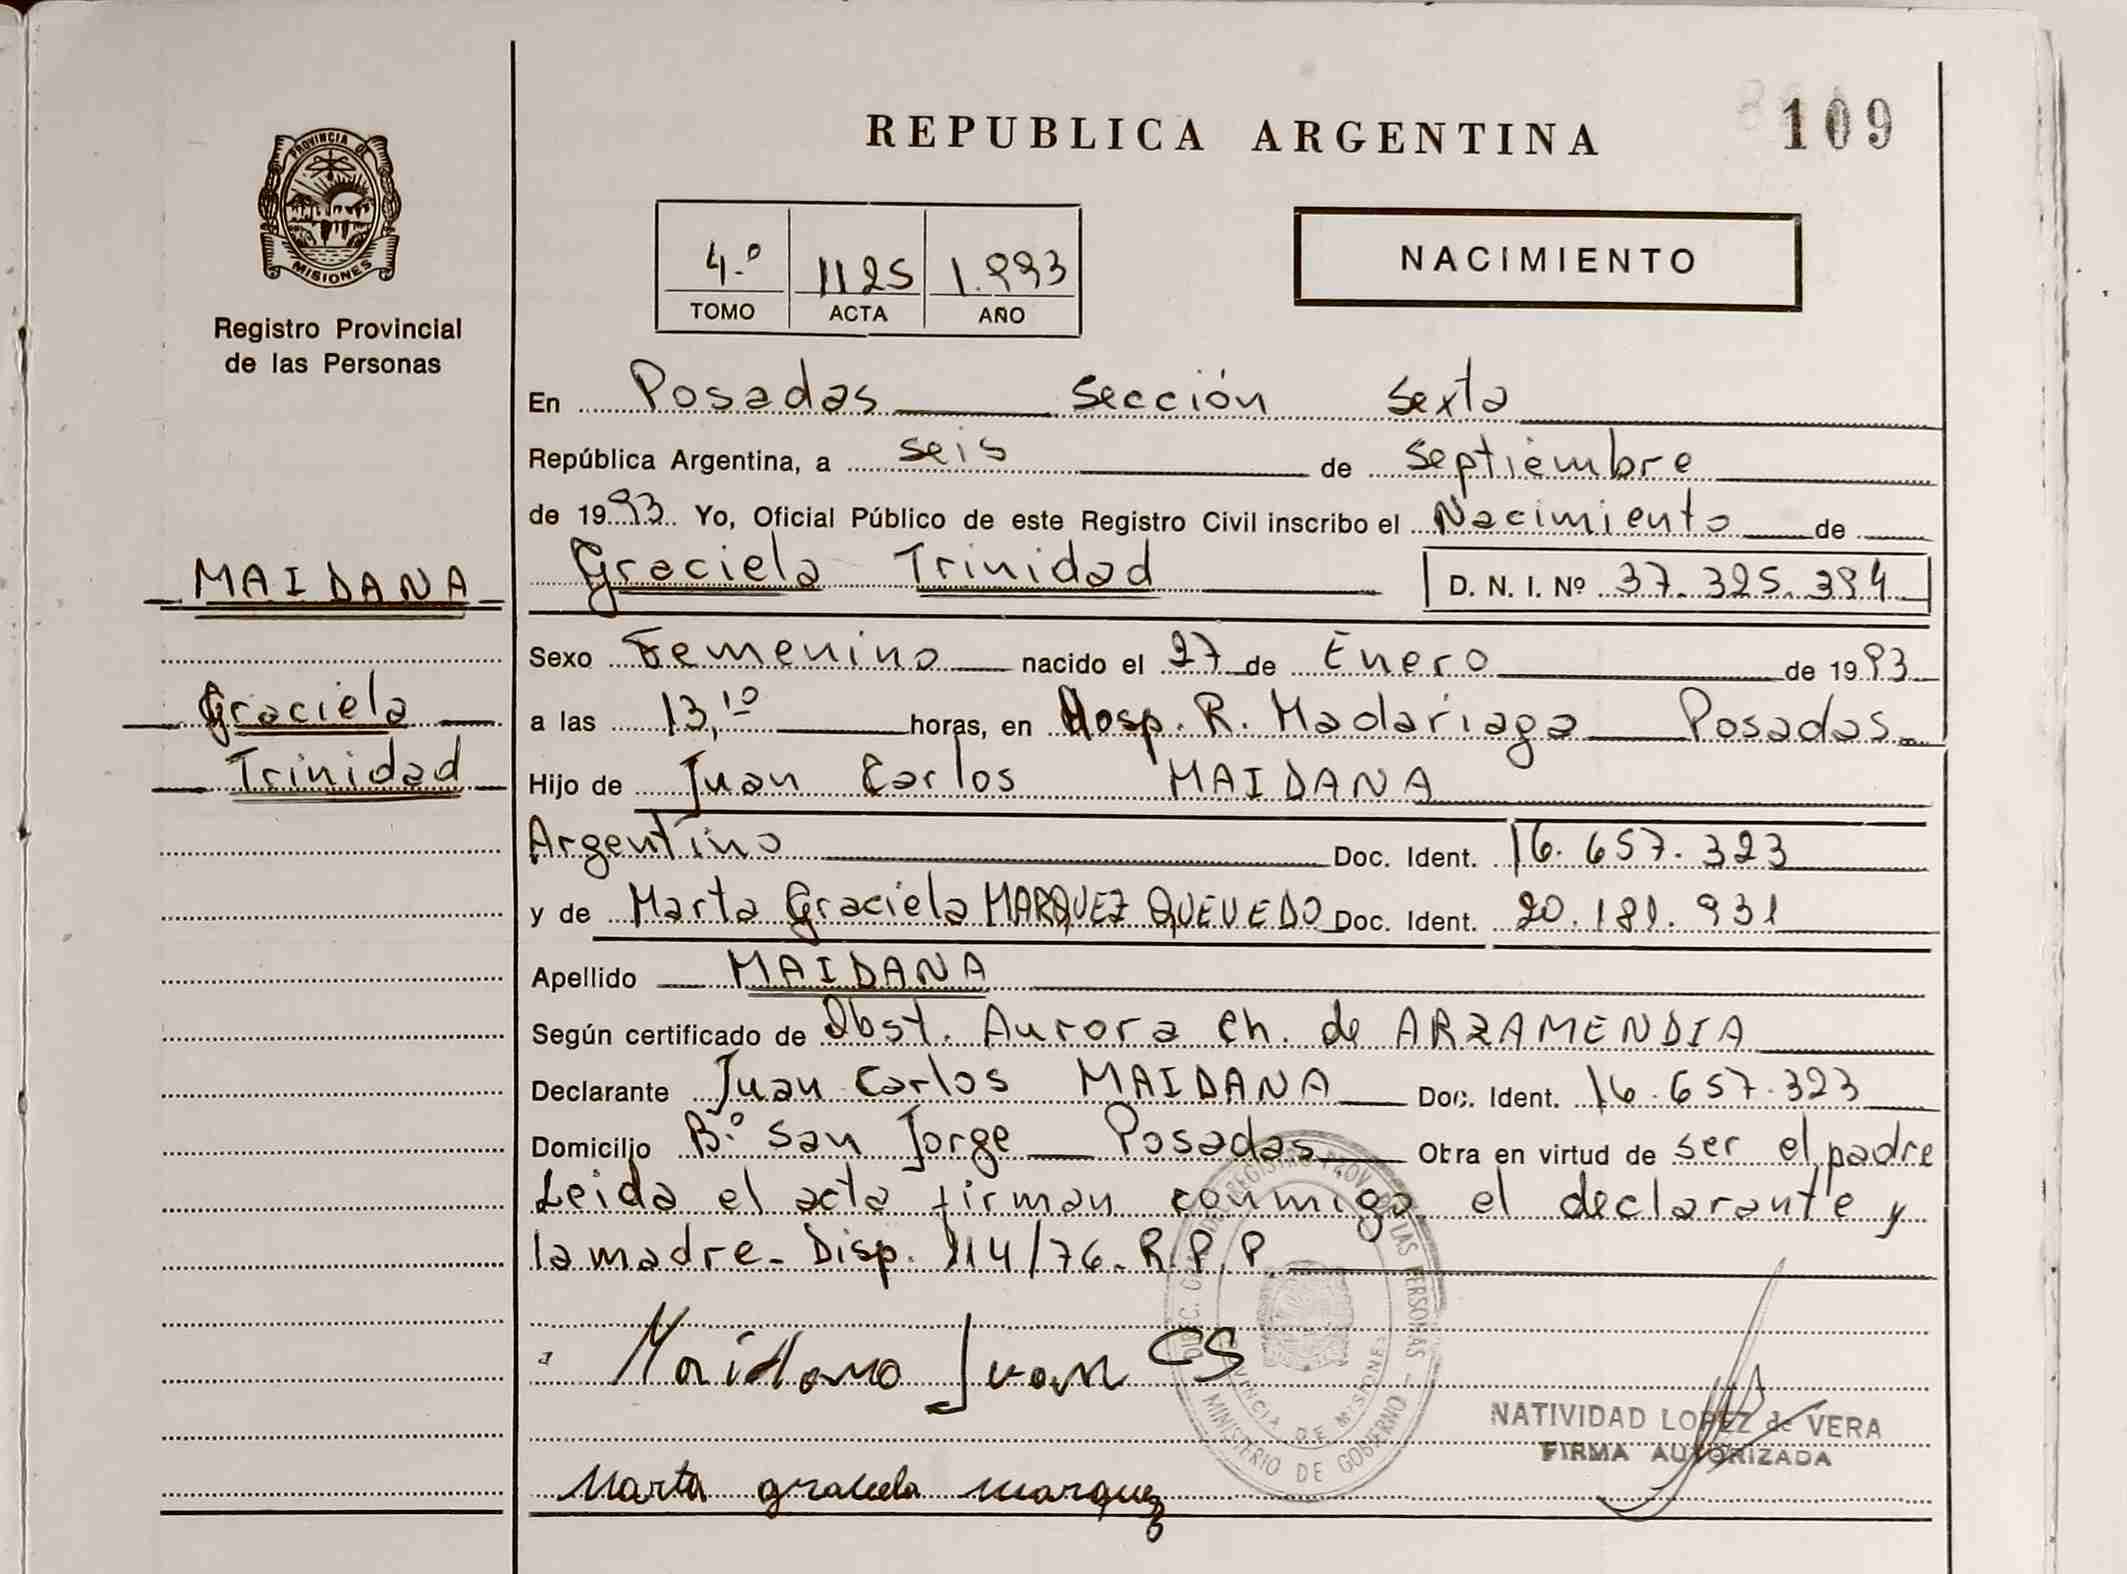 REPUBLICA ARGENTINA
109
PROVINCIA DE
MISIONES
Registro Provincial
de las Personas
4.º 1125 1.993
TOMO ACTA AÑO
NACIMIENTO
En Posadas sección sexta
República Argentina, a seis de septiembre
de 1993. Yo, Oficial Público de este Registro Civil inscribo el Nacimiento de
MAIDANA
Graciela Trinidad D. N. I. Nº 37.325.394
Sexo Femenino nacido el 27 de Enero de 1993
Graciela
a las 13,10 horas, en Hosp. R. Madariaga Posadas
Trinidad
Hijo de Juan Carlos MAIDANA
Argentino Doc. Ident. 16.657.323
y de Marta Graciela MARQUEZ QUEVEDO Doc. Ident. 20.181.931
Apellido MAIDANA
Según certificado de Obst. Aurora Ch. de ARZAMENDIA
Declarante Juan Carlos MAIDANA Doc. Ident. 16.657.323
Domicilio B.º San Jorge Posadas Obra en virtud de ser el padre
Leida el acta firman conmigo el declarante y
la madre. Disp. 114/76. R.P.P.
Maidana Juan CS
NATIVIDAD LOPEZ de VERA
FIRMA AUTORIZADA
Marta graciela marquez
PROVINCIA DE MISIONES
MINISTERIO DE GOBIERNO